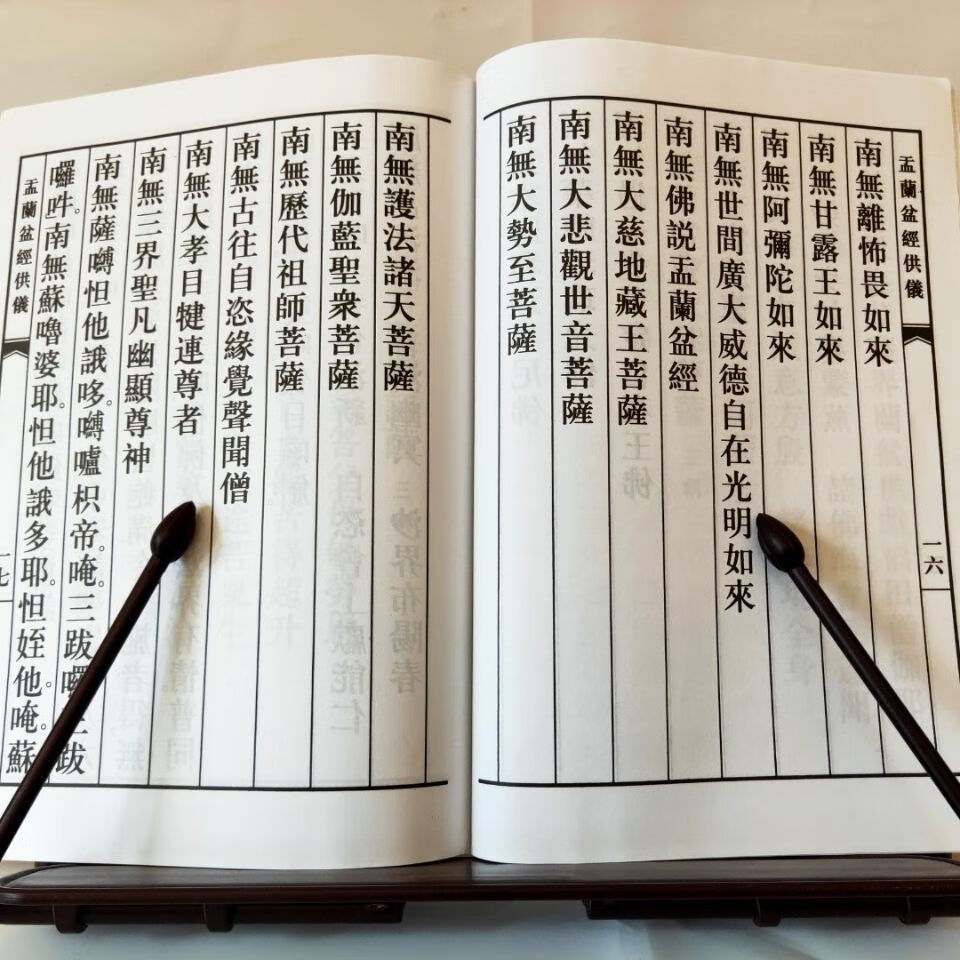 盂蘭盆經供儀
一六
南無離怖畏如來
南無甘露王如來
南無阿彌陀如來
南無世間廣大威德自在光明如來
南無佛説盂蘭盆經
南無大慈地藏王菩薩
南無大悲觀世音菩薩
南無大勢至菩薩
南無護法諸天菩薩
南無伽藍聖衆菩薩
南無歷代祖師菩薩
南無古往自恣緣覺聲聞僧
南無大孝目犍連尊者
南無三界聖凡幽顯尊神
南無薩嚩怛他誐哆。嚩嚧枳帝。唵。三跋囉三跋
囉吽。南無蘇嚕婆耶。怛他誐多耶。怛姪他。唵。蘇
盂蘭盆經供儀
一七